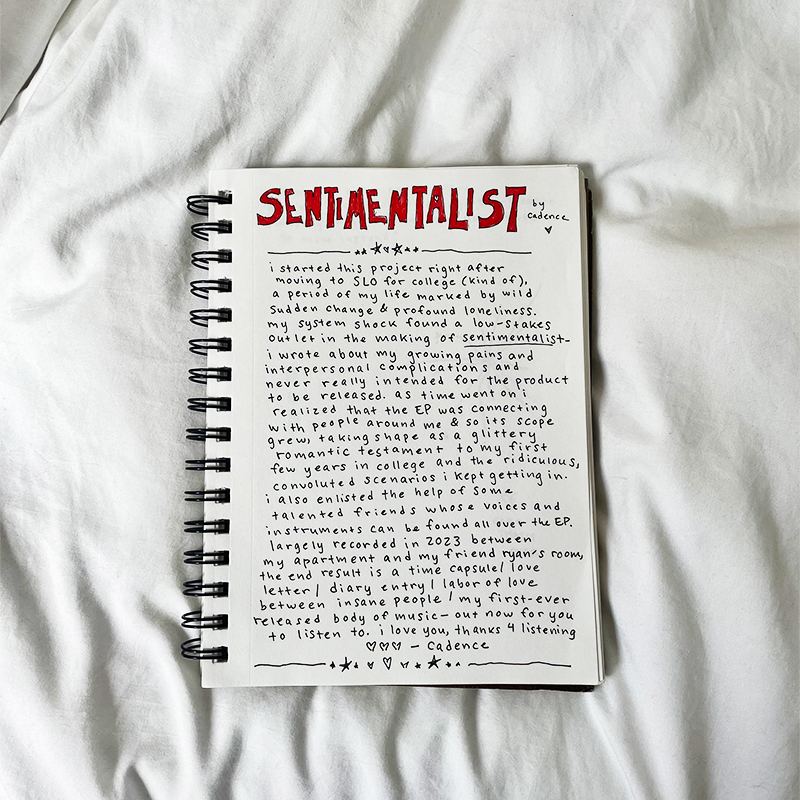 SENTIMENTALIST
by
cadence
i started this project right after
moving to SLO for college (kind of),
a period of my life marked by wild
sudden change & profound loneliness.
my system shock found a low-stakes
outlet in the making of sentimentalist-
i wrote about my growing pains and
interpersonal complications and
never really intended for the product
to be released. as time went on i
realized that the EP was connecting
with people around me & so its scope
grew, taking shape as a glittery
romantic testament to my first
few years in college and the ridiculous,
convoluted scenarios i kept getting in.
i also enlisted the help of some
talented friends whose voices and
instruments can be found all over the EP.
largely recorded in 2023 between
my apartment and my friend ryan's room,
the end result is a time capsule/ love
letter/ diary entry/ labor of love
between insane people / my first-ever
released body of music- out now for you
to listen to. i love you, thanks 4 listening
♡♡♡ - cadence